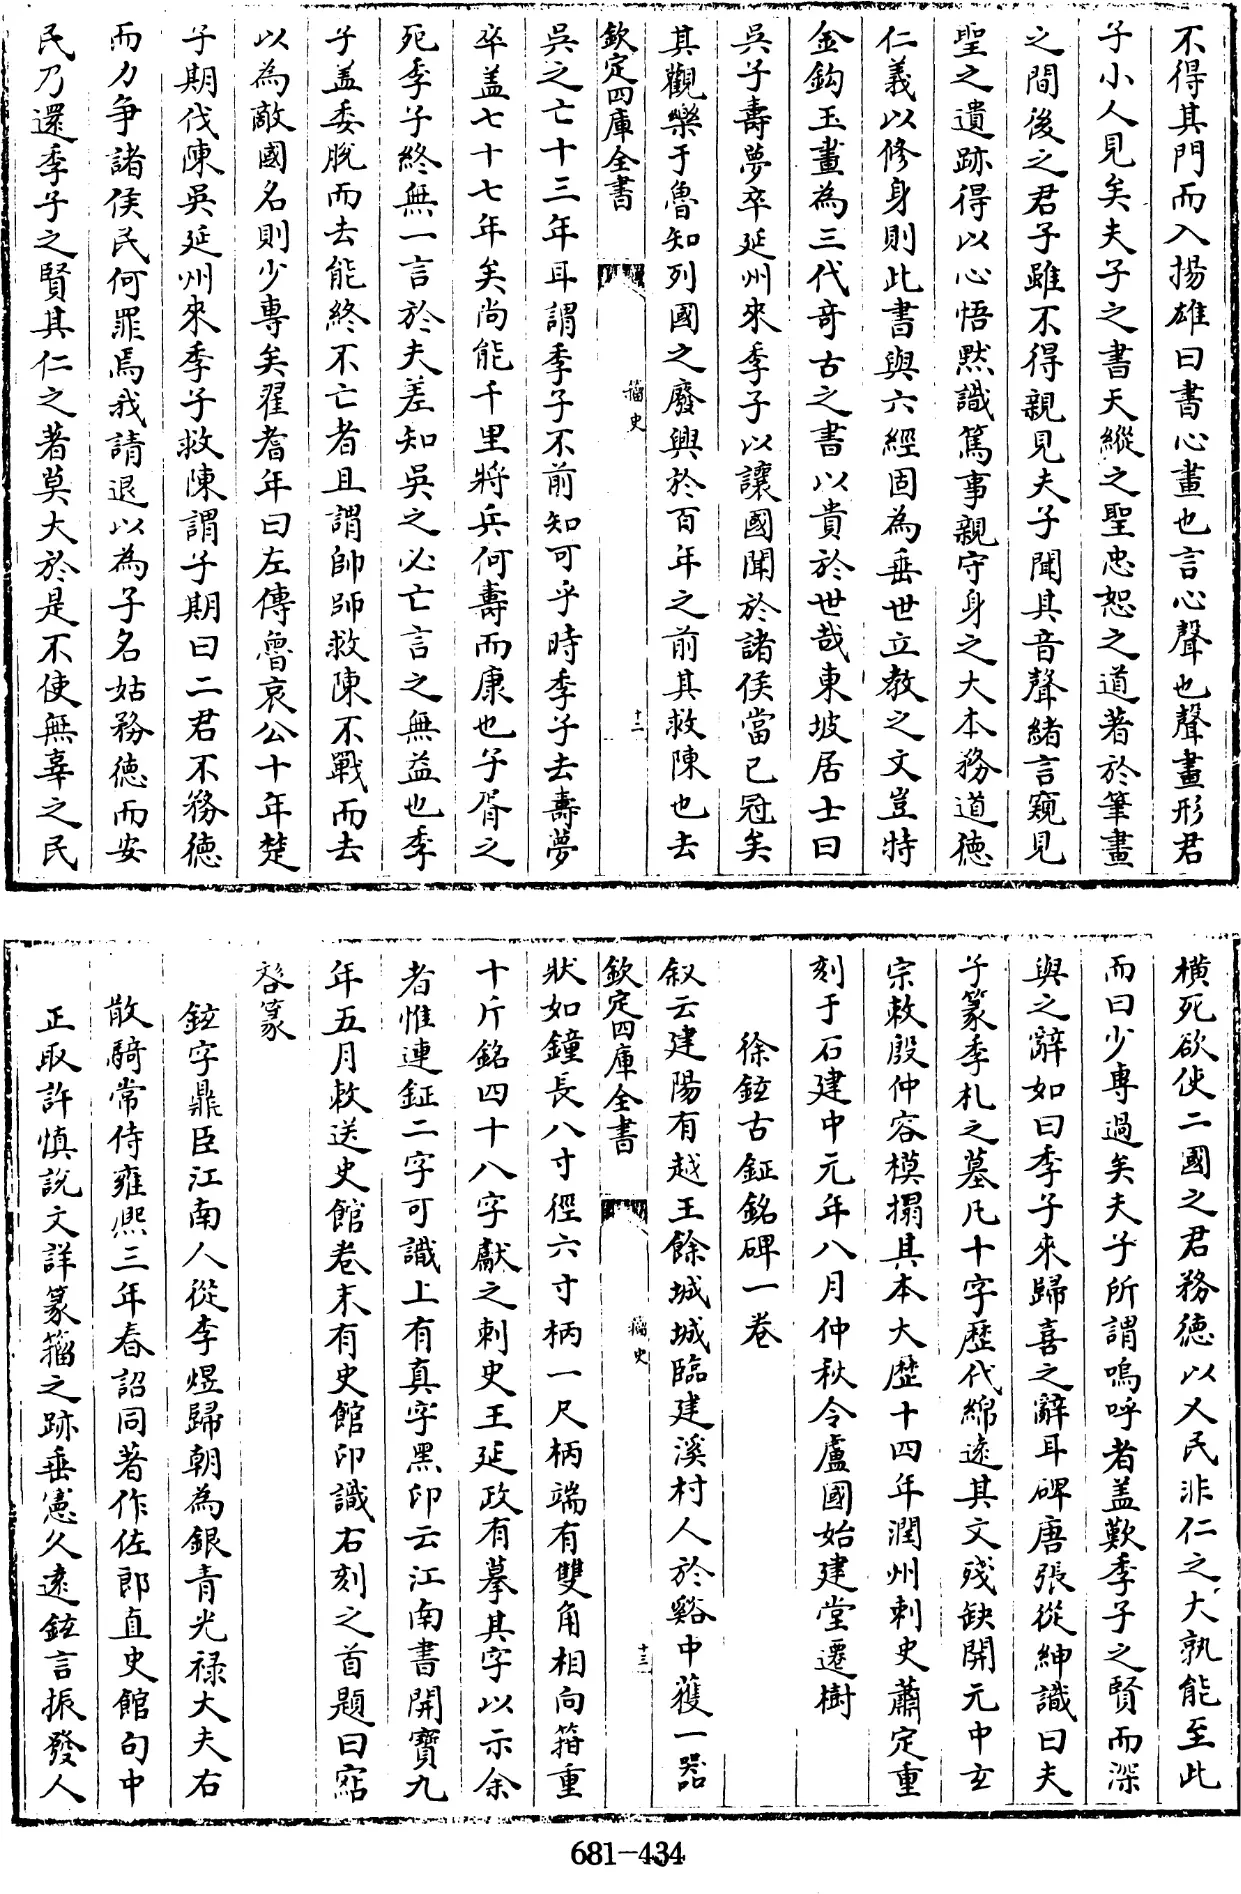 不得其門而入揚雄曰書心畫也言心聲也聲畫形君
子小人見矣夫子之書天縱之聖忠恕之道著於筆畫
之間後之君子雖不得親見夫子聞其音聲緒言窺見
聖之遺跡得以心悟默識篤事親守身之大本務道德
仁義以修身則此書與六經固為垂世立教之文豈特
金鈎玉畫為三代奇古之書以貴於世哉東坡居士曰
吳子壽夢卒延州來季子以讓國聞於諸侯當已冠矣
其觀樂于魯知列國之廢興於百年之前其救陳也去
欽定四庫全書
籀史
十二
吳之亡十三年耳謂季子不前知可乎時季子去壽夢
卒盖七十七年矣尚能千里將兵何壽而康也子胥之
死季子終無一言於夫差知吳之必亡言之無益也季
子盖委脫而去能終不亡者且謂帥師救陳不戰而去
以為敵國名則少專矣翟耆年曰左傳魯哀公十年楚
子期伐陳吳延州來季子救陳謂子期曰二君不務德
而力争諸侯民何罪焉我請退以為子名姑務德而安
民乃還季子之賢其仁之著莫大於是不使無辜之民
橫死欲使二國之君務德以乂民非仁之大孰能至此
而曰少專過矣夫子所謂嗚呼者盖歎季子之賢而深
與之辭如曰季子來歸喜之辭耳碑唐張從紳識曰夫
子篆季札之墓凡十字歷代綿逺其文殘缺開元中玄
宗敕殷仲容模搨其本大歷十四年潤州刺史蕭定重
刻于石建中元年八月仲秋令盧國始建堂遷樹
徐鉉古鉦銘碑一卷
叙云建陽有越王餘城城臨建溪村人於谿中獲一器
欽定四庫全書
籀史
十三
狀如鐘長八寸徑六寸柄一尺柄端有雙角相向箝重
十斤銘四十八字獻之刺史王延政有摹其字以示余
者惟連鉦二字可識上有真字黑印云江南書開寶九
年五月敕送史館卷末有史館印識右刻之首題曰窑
硲篆
鉉字鼎臣江南人從李煜歸朝為銀青光祿大夫右
散騎常侍雍熙三年春詔同著作佐郎直史館句中
正取許慎說文詳篆籀之跡垂憲久逺鉉言振發人
681-434